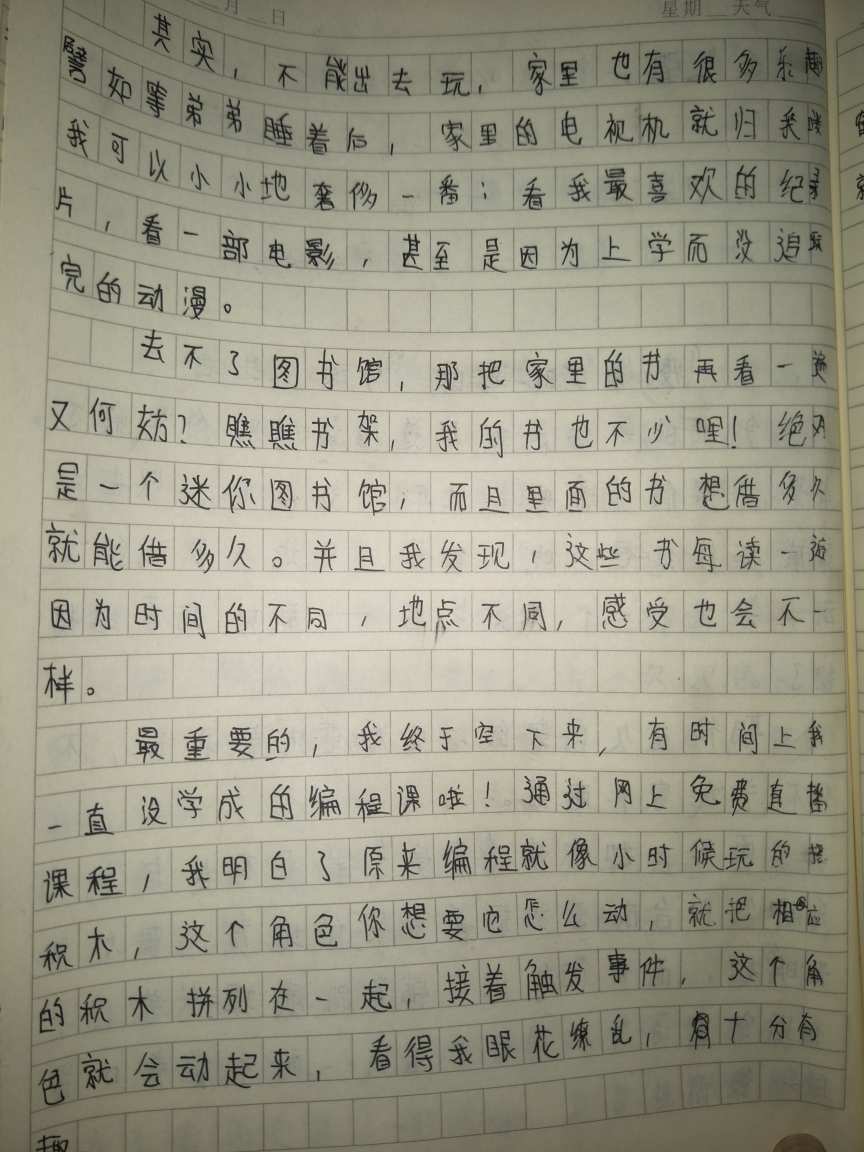 月 日 星期 天气
其实，不能出去玩，家里也有很多乐趣
譬如等弟弟睡着后，家里的电视机就归我喽
我可以小小地奢侈一番：看我最喜欢的纪录
片，看一部电影，甚至是因为上学而没追
完的动漫。
去不了图书馆，那把家里的书再看一遍
又何妨？瞧瞧书架，我的书也不少哩！绝对
是一个迷你图书馆，而且里面的书想借多久
就能借多久。并且我发现，这些书每读一遍
因为时间的不同，地点不同，感受也会不一
样。
最重要的，我终于空下来，有时间上我
一直没学成的编程课啦！通过网上免费直播
课程，我明白了原来编程就像小时候玩的
积木，这个角色你想要它怎么动，就把相应
的积木拼列在一起，接着触发事件，这个角
色就会动起来，看得我眼花缭乱，十分有
趣